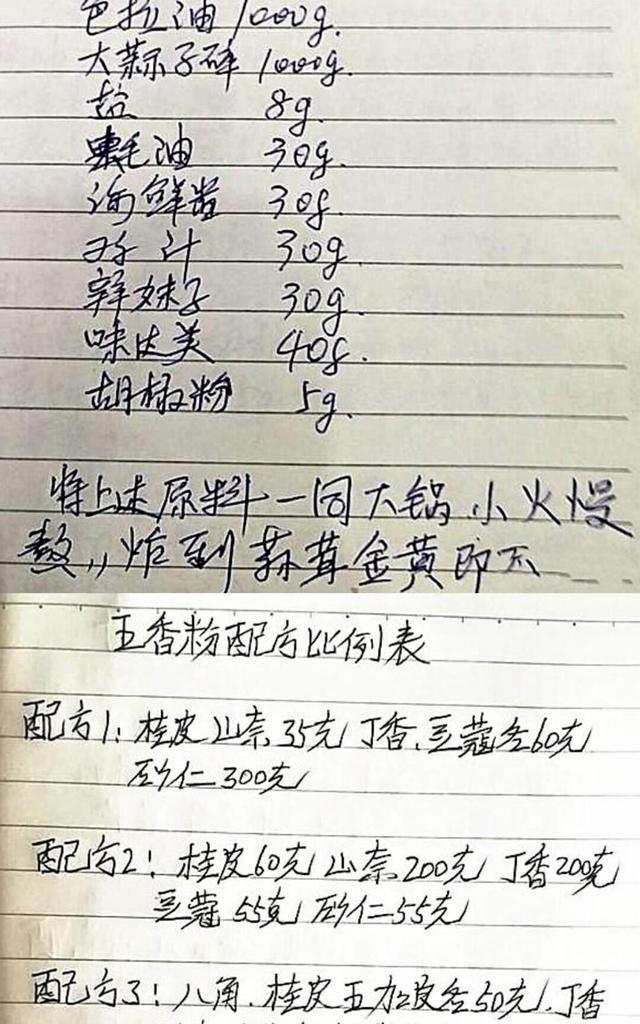 色拉油 1000g.
大蒜子碎 1000g.
盐 8g.
蚝油 30g.
海鲜酱 30g.
鸡汁 30g.
辣妹子 30g.
味达美 40g.
胡椒粉 5g.
将上述原料一同入锅小火慢
熬,,炸到蒜茸金黄即可
五香粉配方比例表
配方1: 桂皮 山奈 35克 丁香、豆蔻各60克
砂仁 300克
配方2: 桂皮60克 山奈200克 丁香200克
豆蔻 55克 砂仁55克
配方3: 八角、桂皮 五加皮各50克、丁香